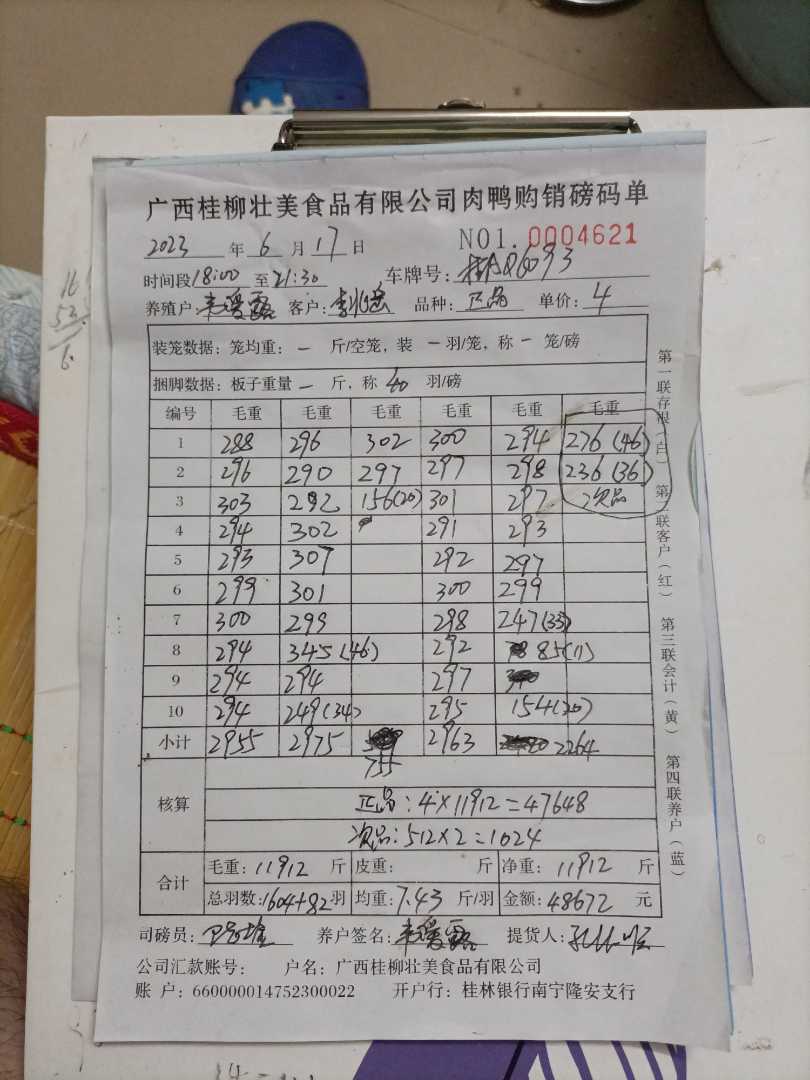 广西桂柳壮美食品有限公司肉鸭购销磅码单
2023 年 6 月 17 日 NO1. 0004621
时间段 18:00 至 21:30 车牌号: 桂AQ6093
养殖户: 韦爱露 客户: 品种: 正品 单价: 4
装笼数据: 笼均重: - 斤/空笼, 装 - 羽/笼, 称 - 笼/磅
捆脚数据: 板子重量 - 斤, 称 40 羽/磅
编号 毛重 毛重 毛重 毛重 毛重 毛重
1 288 296 302 300 294 276 (46)
2 296 290 297 297 298 236 (36)
3 303 292 156(20) 301 297 次品
4 294 302 291 293
5 293 307 292 297
6 299 301 300 299
7 300 299 298 247(33)
8 294 345(46) 292 85(11)
9 294 294 297
10 294 249(34) 295 154(20)
小计 2955 2975 2963 2264
755
核算
正品: 4×11912=47648
次品: 512×2=1024
合计
毛重: 11912 斤 皮重: 斤 净重: 11912 斤
总羽数: 1604+82 羽 均重: 7.43 斤/羽 金额: 48672 元
司磅员: 养户签名: 韦爱露 提货人:
公司汇款账号: 户名: 广西桂柳壮美食品有限公司
账 户: 660000014752300022 开户行: 桂林银行南宁隆安支行
第一联存根(白) 第二联客户(红) 第三联会计(黄) 第四联养户(蓝)